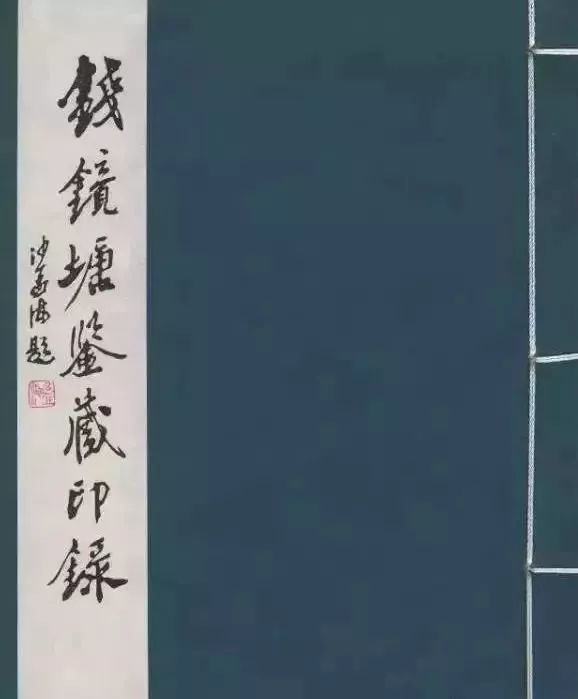 錢鏡塘鑒藏印錄
沙孟海題